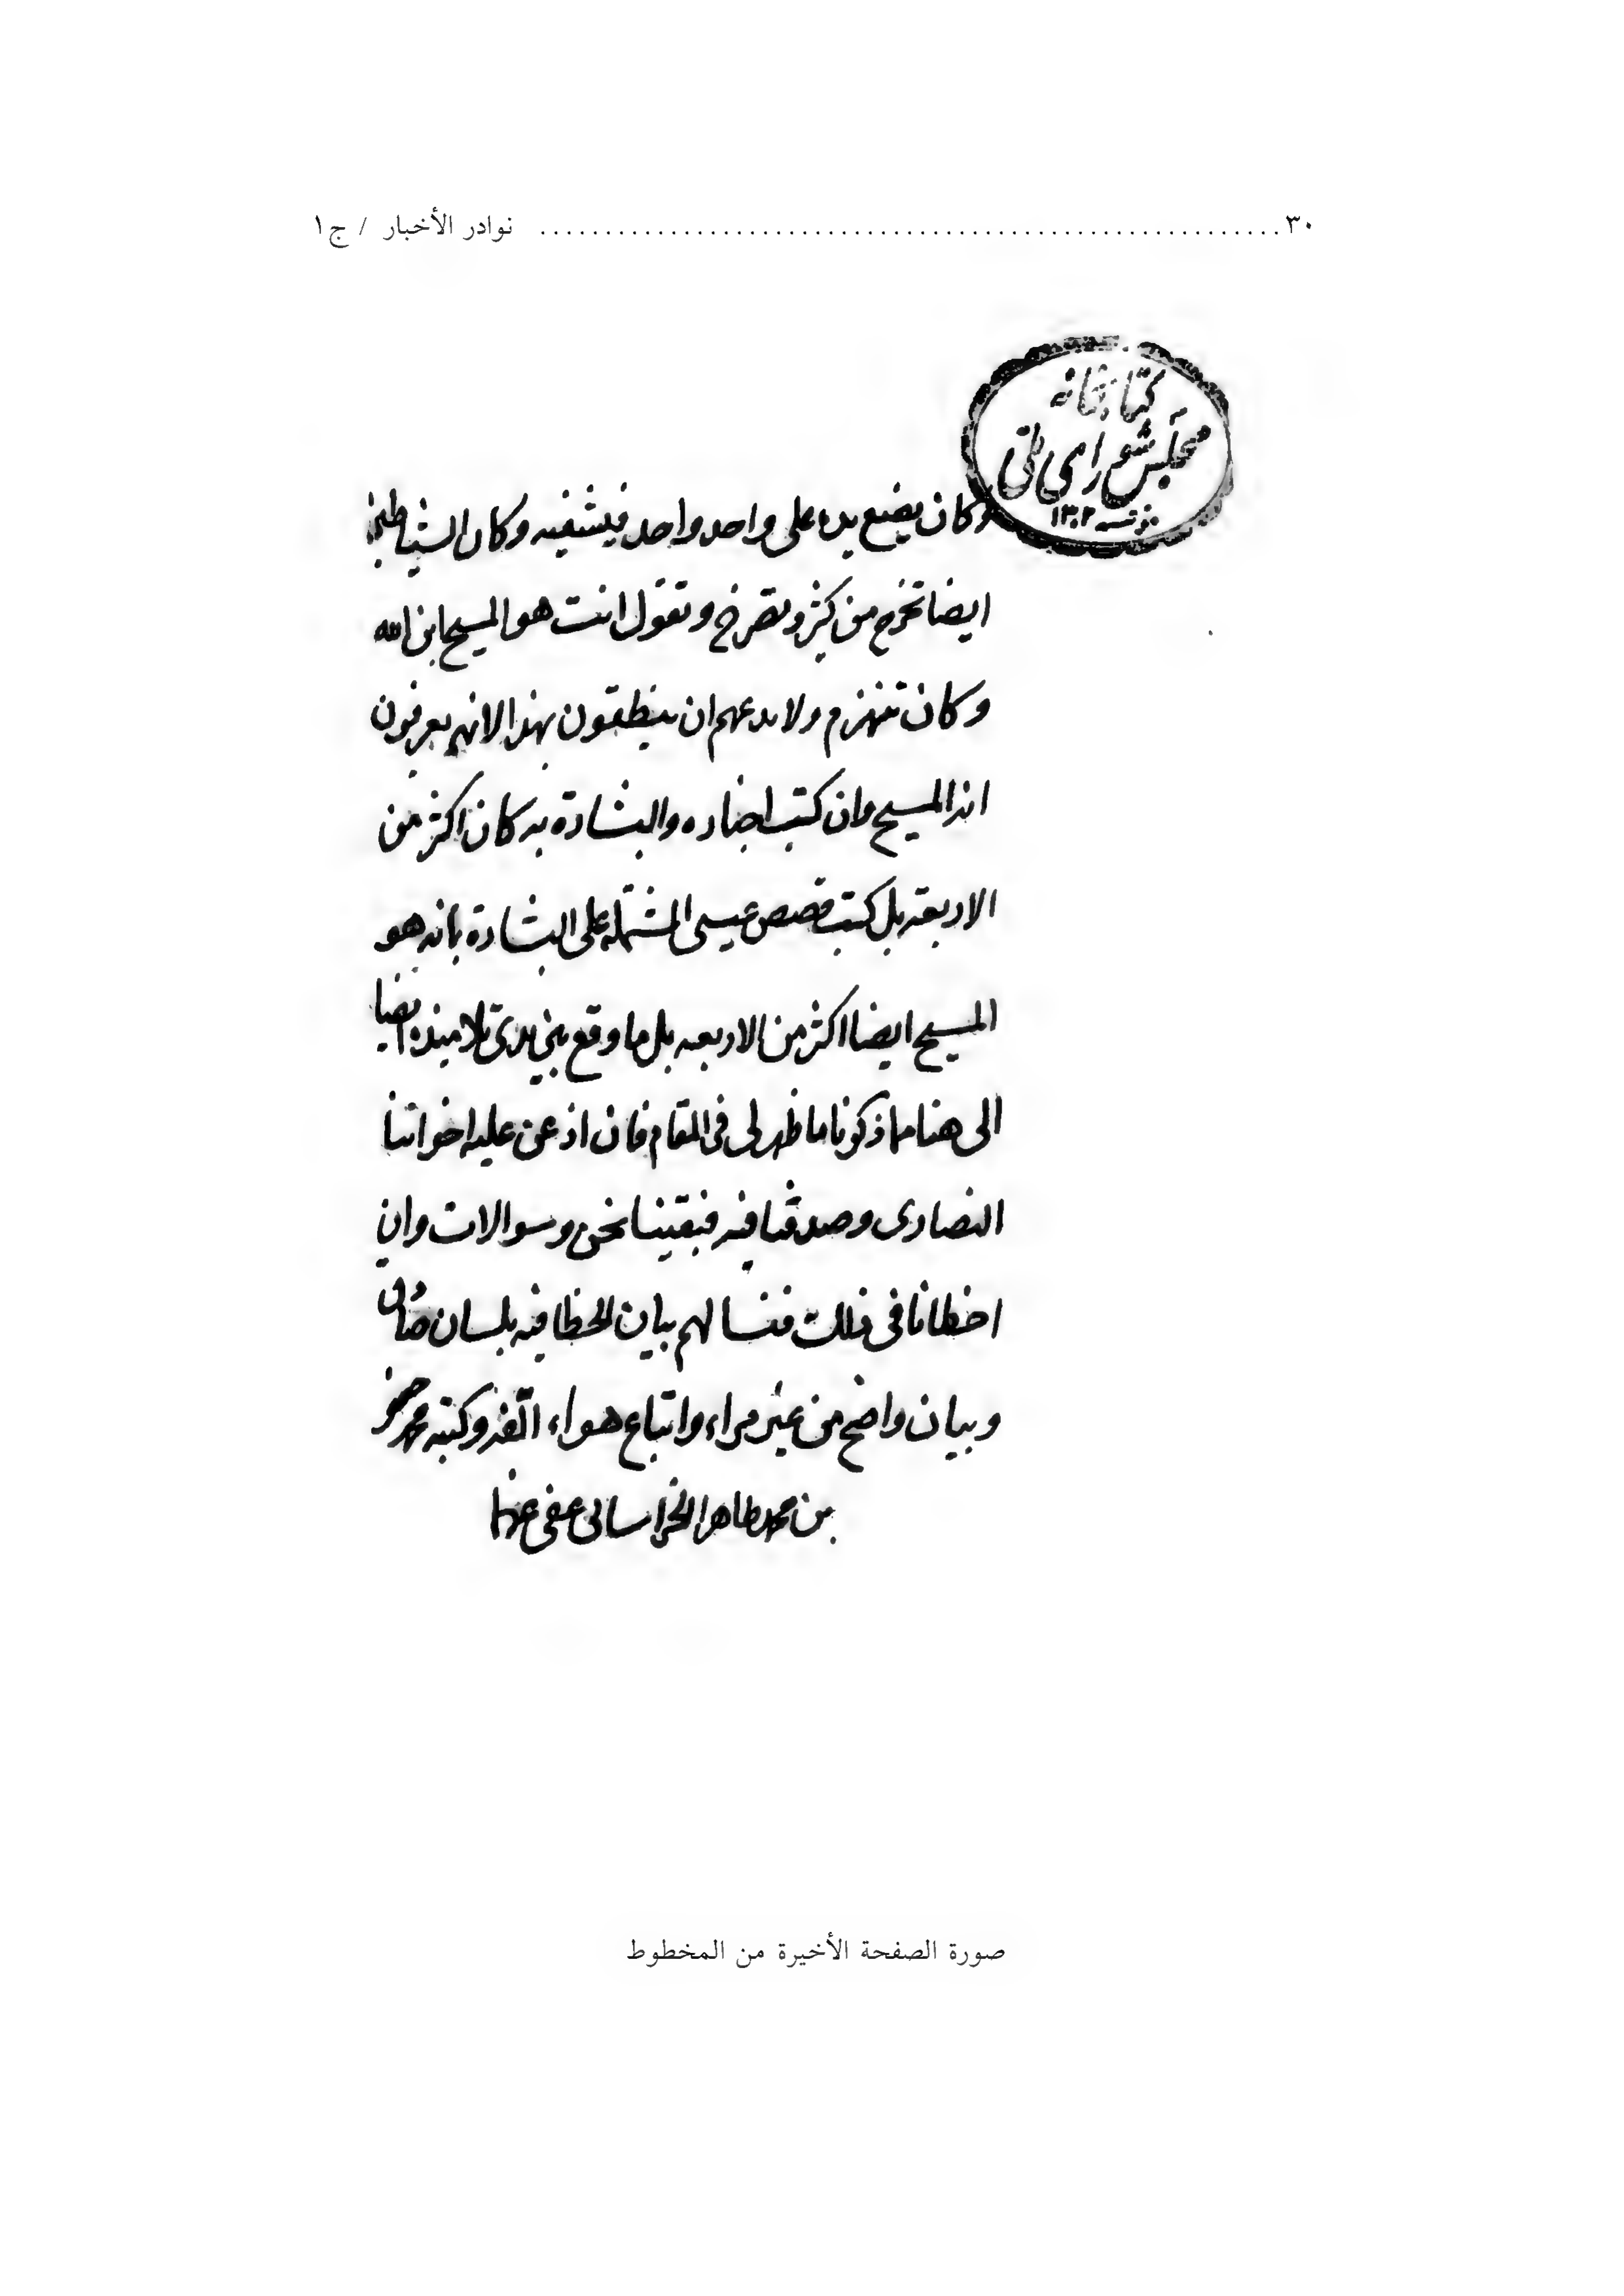 ٣٠ ........................................................ نوادر الأخبار / ج١
كتابخانه
مجلس شورای ملی
١٣٠٢
وكان يضع يده على واحد واحد فيشفيه وكان الشياطين
ايضا تخرج من كثير وتصرخ وتقول انت هو المسيح ابن الله
وكان تنهزم ولا يدعهم ان ينطقون بهذا لانهم يعرفون
المسيح وان كتب اخباره والبشارة به كان اكثر من
الاربعة بل كتب قصص عيسى المشتملة على البشارة بانه هو
المسيح ايضا اكثر من الاربعه بل ما وقع بين يدى تلاميذه ايضا
الى هنا مما ذكرنا ما ظهر لى فى المقام فان اذعن عليه اخواننا
النصارى وصدقنا فيه فبقينا نحن وسوالات وان
اخطانا فى ذلك فنسالهم بيان الخطا فيه بلسان
وبيان واضح من غير مراء واتباع هواء وكتبه محمد
بن محمد طاهر الخراسانى عفى عنهما
صورة الصفحة الأخيرة من المخطوط